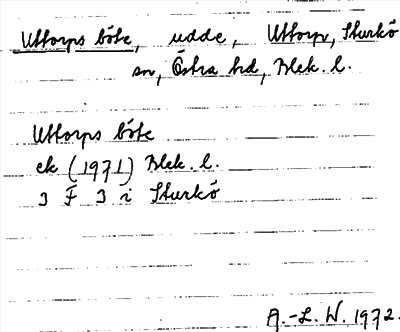 Uttorps böte, udde, Uttorp, Sturkö
sn, Östra hd, Blek. l.
Uttorps böte
ek (1971) Blek. l.
3 F 3 i Sturkö
A.-L. W. 1972.